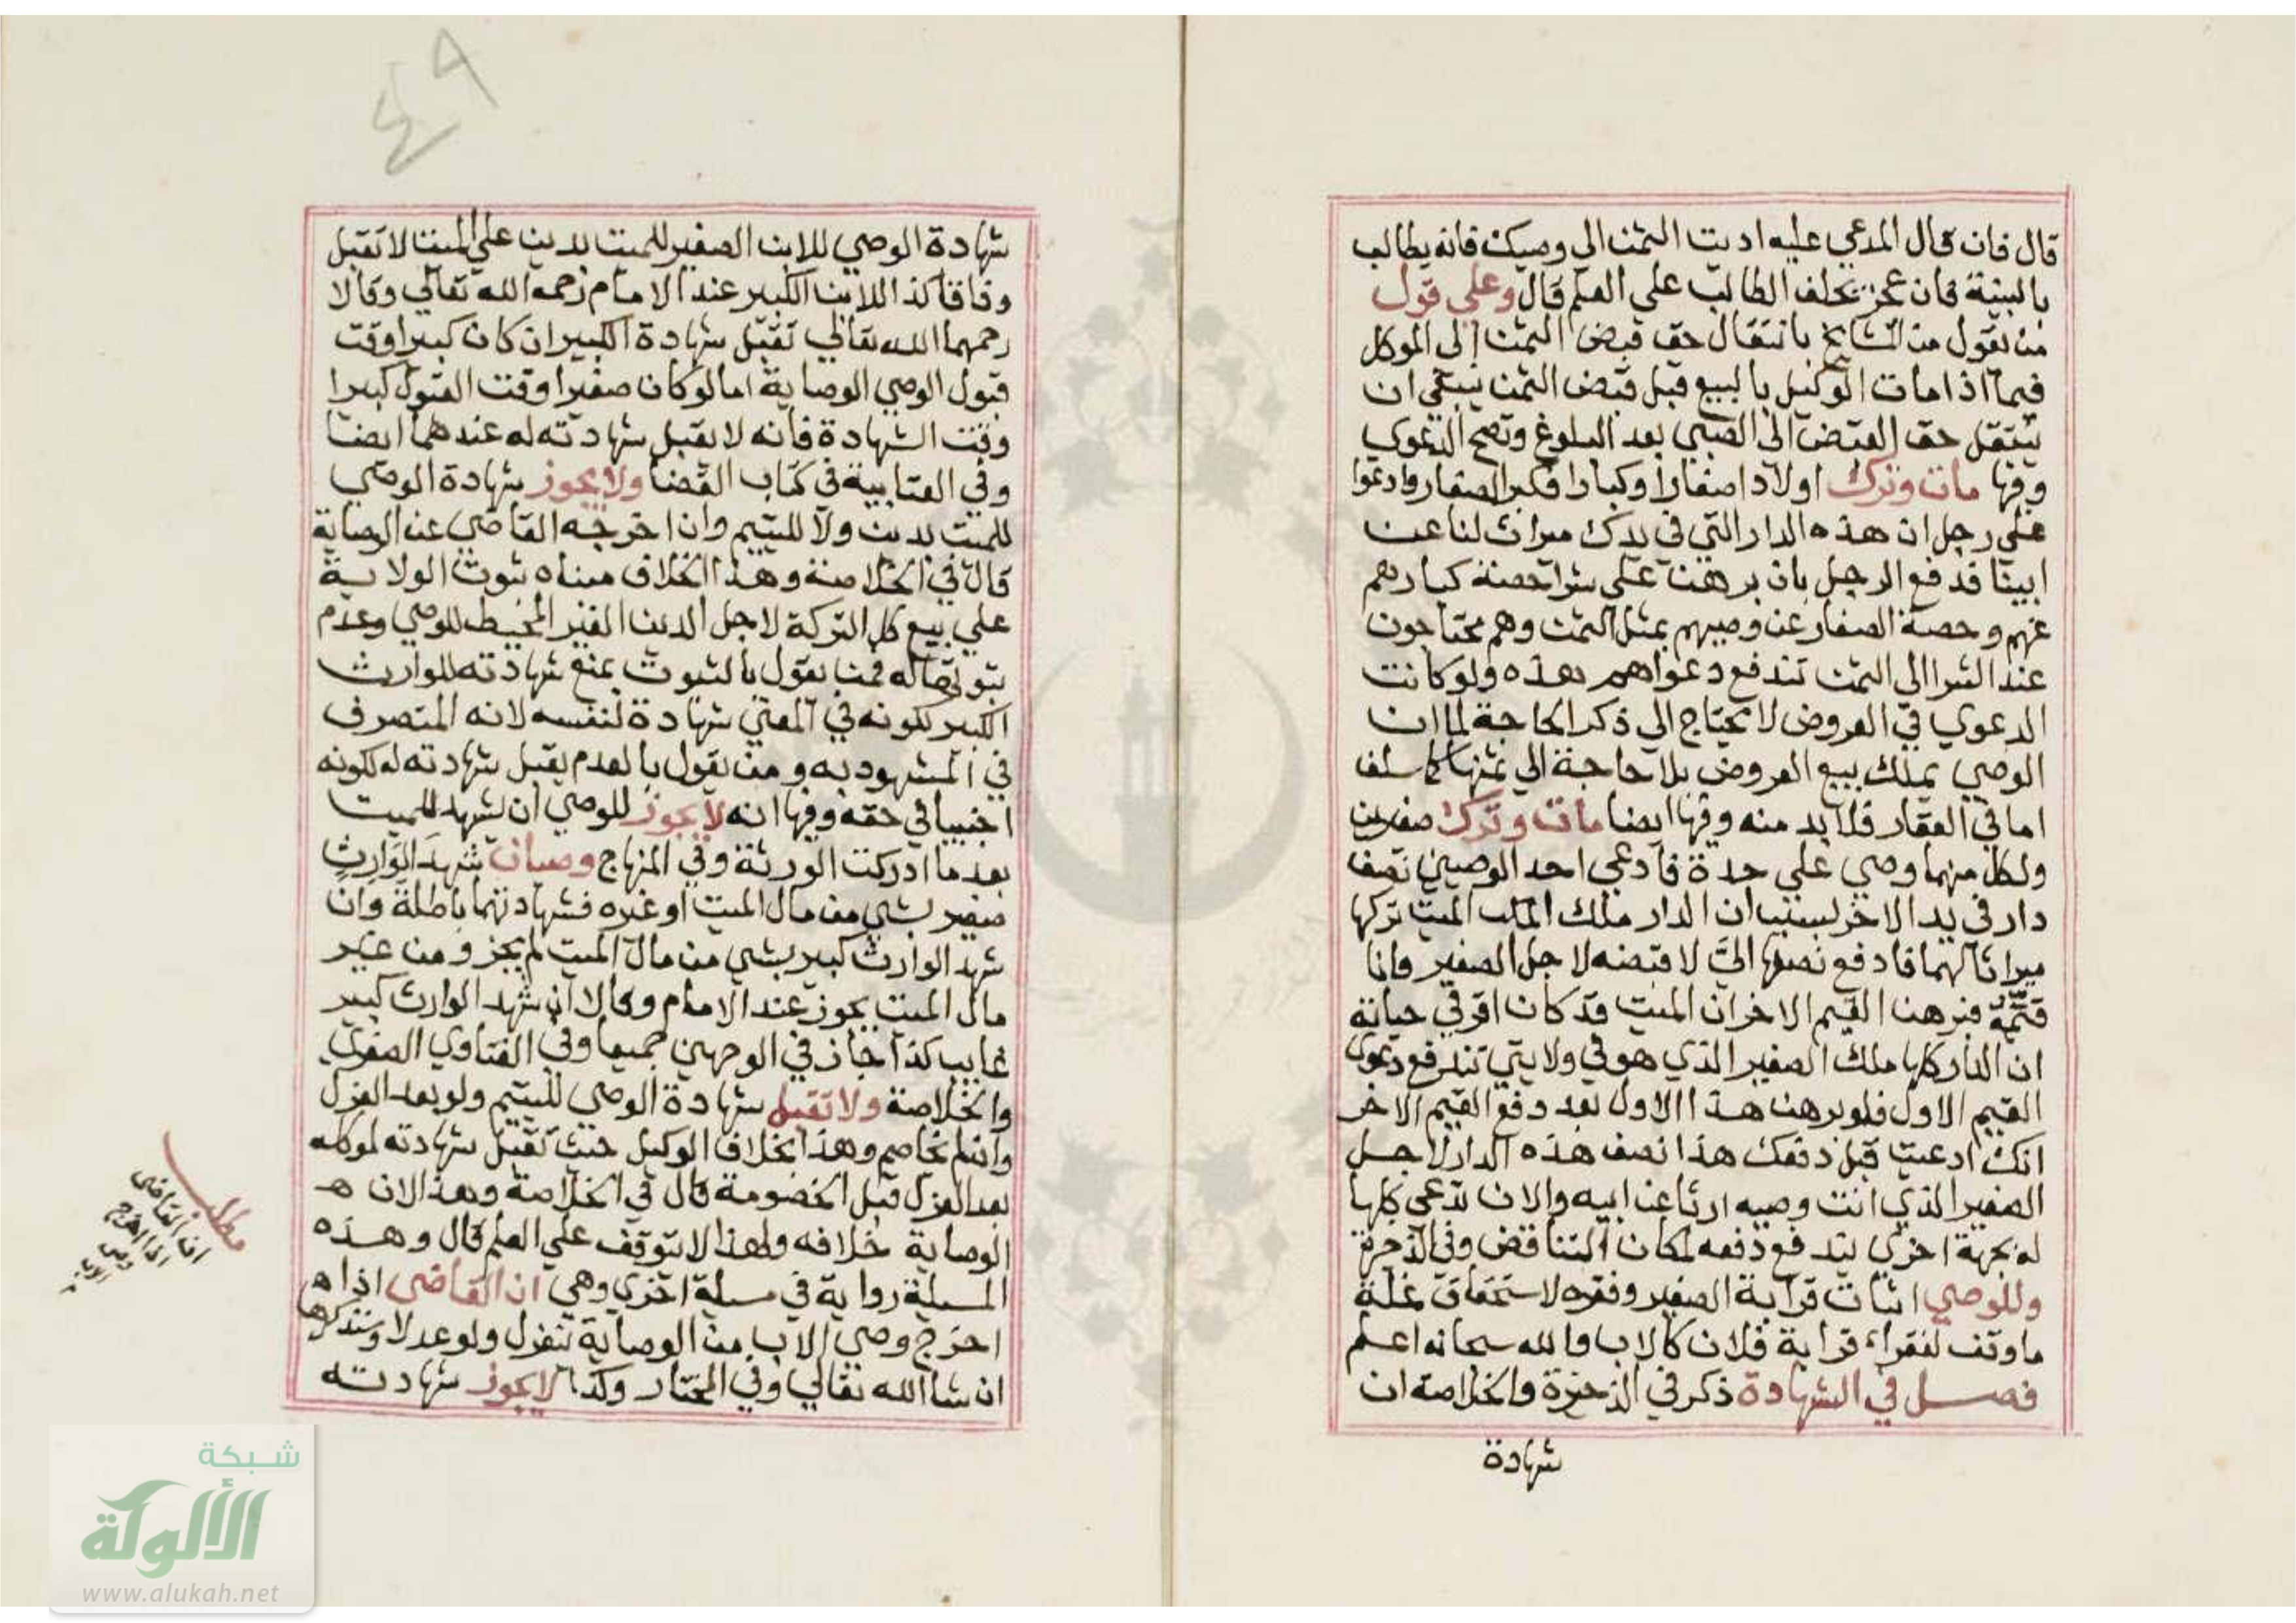 قال فان قال المدعي عليه اديت الثمن الي وصيك فانه يطالب
بالبينة فان عجز يحلف الطالب علي العلم قال وعلي قول
من يقول من المشايخ بانتقال حق قبض الثمن إلي الموكل
فيما اذا مات الوكيل بالبيع قبل قبض الثمن ينبغي ان
ينتقل حق القبض الي الصبي بعد البلوغ وتصح الدعوي
وفيها مات وترك اولادا صغارا وكبارا فكبر الصغار وادعوا
علي رجل ان هذه الدار التي في يدك ميراث لنا عن
ابينا فدفع الرجل بان برهن علي شرا حصة كبارهم
عنهم وحصة الصغار عن وصيهم بمثل الثمن وهم محتاجون
عند الشرا الي الثمن تندفع دعواهم بهذه ولو كانت
الدعوي في العروض لا يحتاج الي ذكر الحاجة لما ان
الوصي يملك بيع العروض بلا حاجة الي ثمنها كما سلف
اما في العقار فلا بد منه وفيها ايضا مات وترك صغيرين
ولكل منهما وصي علي حدة فادعي احد الوصيين نصف
دار في يد الاخر بسبب ان الدار ملك الملك الميت تركها
ميراثا لهما فادفع نصفها اليّ لاقبضه لاجل الصغير وانا
قيّمة فبرهن القيم الاخر ان الميت قد كان اقر في حياته
ان الدار كلها ملك الصغير الذي هو في ولايتي تندفع دعوي
القيم الاول فلو برهن هذا الاول بعد دفع القيم الاخر
انك ادعيت قبل دفعك هذا نصف هذه الدار لاجل
الصغير الذي انت وصيه ارثا عن ابيه والان تدعي كلها
له بجهة اخري يندفع دفعه لمكان التناقض وفي الذخيرة
وللوصي اثبات قرابة الصغير وفقره لاستحقاق غلة
ما وقف لفقراء قرابة فلان كالاب والله سبحانه اعلم
فصل في الشهادة ذكر في الذخيرة والخلاصة ان
شهادة
٤٩
شهادة الوصي للابن الصغير للميت بدين علي الميت لا تقبل
وفاقا كذا للابن الكبير عند الامام رحمه الله تعالي وقالا
رحمهما الله تعالي تقبل شهادة الكبير ان كان كبيرا وقت
قبول الوصي الوصاية اما لو كان صغيرا وقت القبول كبيرا
وقت الشهادة فانه لا يقبل شهادته له عندهما ايضا
وفي العتابية في كتاب القضا ولا يجوز شهادة الوصي
للميت بدين ولا لليتيم وان اخرجه القاضي عن الوصاية
قال في الخلاصة وهذا الخلاف مبناه ثبوت الولاية
علي بيع كل التركة لاجل الدين الغير المحيط للوصي وعدم
ثبوتها له فمن يقول بالثبوت يمنع شهادته للوارث
الكبير لكونه في المعني شهادة لنفسه لانه المتصرف
في المشهود به ومن يقول بالعدم يقبل شهادته له لكونه
اجنبيا في حقه وفيها انه لا يجوز للوصي ان يشهد للميت
بعد ما ادركت الورثة وفي المنهاج وصيان شهد الوارث
صغير بشي من مال الميت او غيره فشهادتهما باطلة وان
شهد الوارث كبير بشي من مال الميت لم يجز ومن غير
مال الميت يجوز عند الامام وقالا ان شهد الوارث كبير
غايب كذا جاز في الوجهين جميعا وفي الفتاوي الصغري
والخلاصة ولا تقبل شهادة الوصي لليتيم ولو بعد العزل
وان لم يخاصم وهذا بخلاف الوكيل حيث تقبل شهادته لموكله
بعد العزل قبل الخصومة قال في الخلاصة وهذا لان ه
الوصاية خلافه ولهذا لا يتوقف علي العلم قال وهذه
المسيلة رواية في مسيلة اخري وهي ان القاضي اذا ه
اخرج وصي الاب من الوصاية تنعزل ولو عدلا وسنذكرها
ان شا الله تعالي وفي المختار وكذا لا يجوز شهادته
مطلب
ان القاضي
اذا اخرج
وصي
الاب
شبكة
الألوكة
www.alukah.net